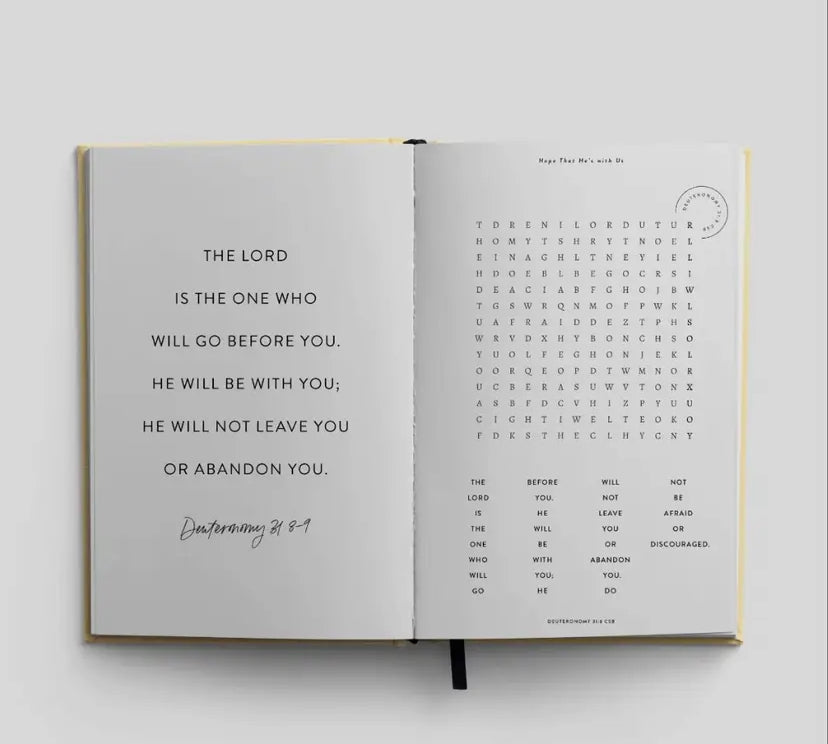 THE LORD
IS THE ONE WHO
WILL GO BEFORE YOU.
HE WILL BE WITH YOU;
HE WILL NOT LEAVE YOU
OR ABANDON YOU.
Deuteronomy 31 8-9
Hope That He's with Us
DEUTERONOMY 31:8 CSB
T D R E N I L O R D U T U R
H O M Y T S H R Y T N O E L
E I N A G H L T N E Y I E L
H D O E B L B E G O C R S I
D E A C I A B F G H O J B W
T G S W R Q N M O F P W K L
U A F R A I D D E Z T P H S
W R V D X H Y B O N C H S O
Y U O L F E G H O N J E K L
O O R Q E O P D T W M N O R
U C B E R A S U W V T O N X
A S B F D C V H I Z P Y U U
C I G H T I W E L T E O K O
F D K S T H E C L H Y C N Y
THE BEFORE WILL NOT
LORD YOU. NOT BE
IS HE LEAVE AFRAID
THE WILL YOU OR
ONE BE OR DISCOURAGED.
WHO WITH ABANDON
WILL YOU; YOU.
GO HE DO
DEUTERONOMY 31:8 CSB